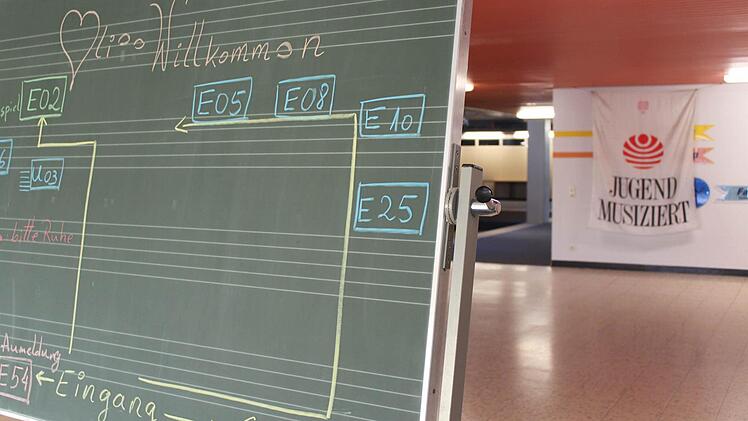 ♡lioo Willkommen
spiel E02
E05 E08 E10
U03
E25
bitte Ruhe
Anmeldung
E54 ← Eingang
JUGEND
MUSIZIERT